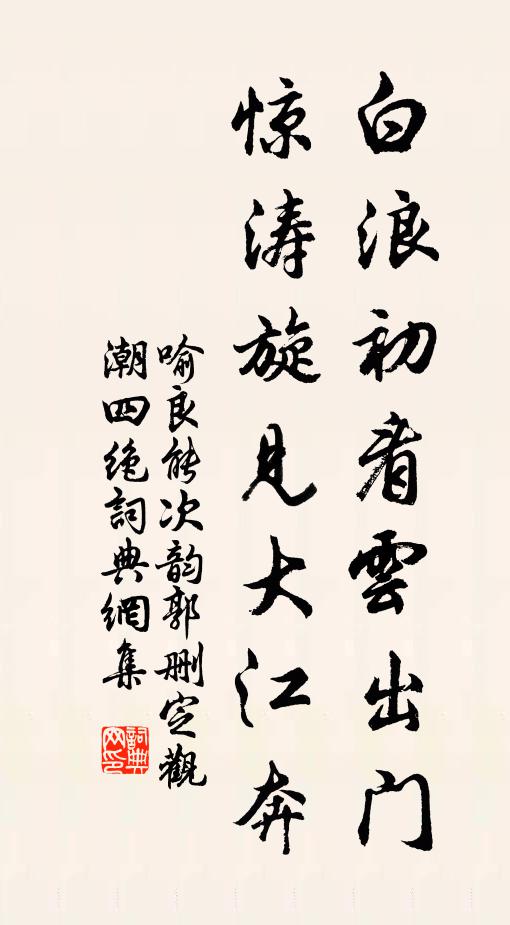 白浪初看雲出门
惊涛旋见大江奔
喻良能次韵郭删定觀
潮四绝詞典網集
詞典
网印